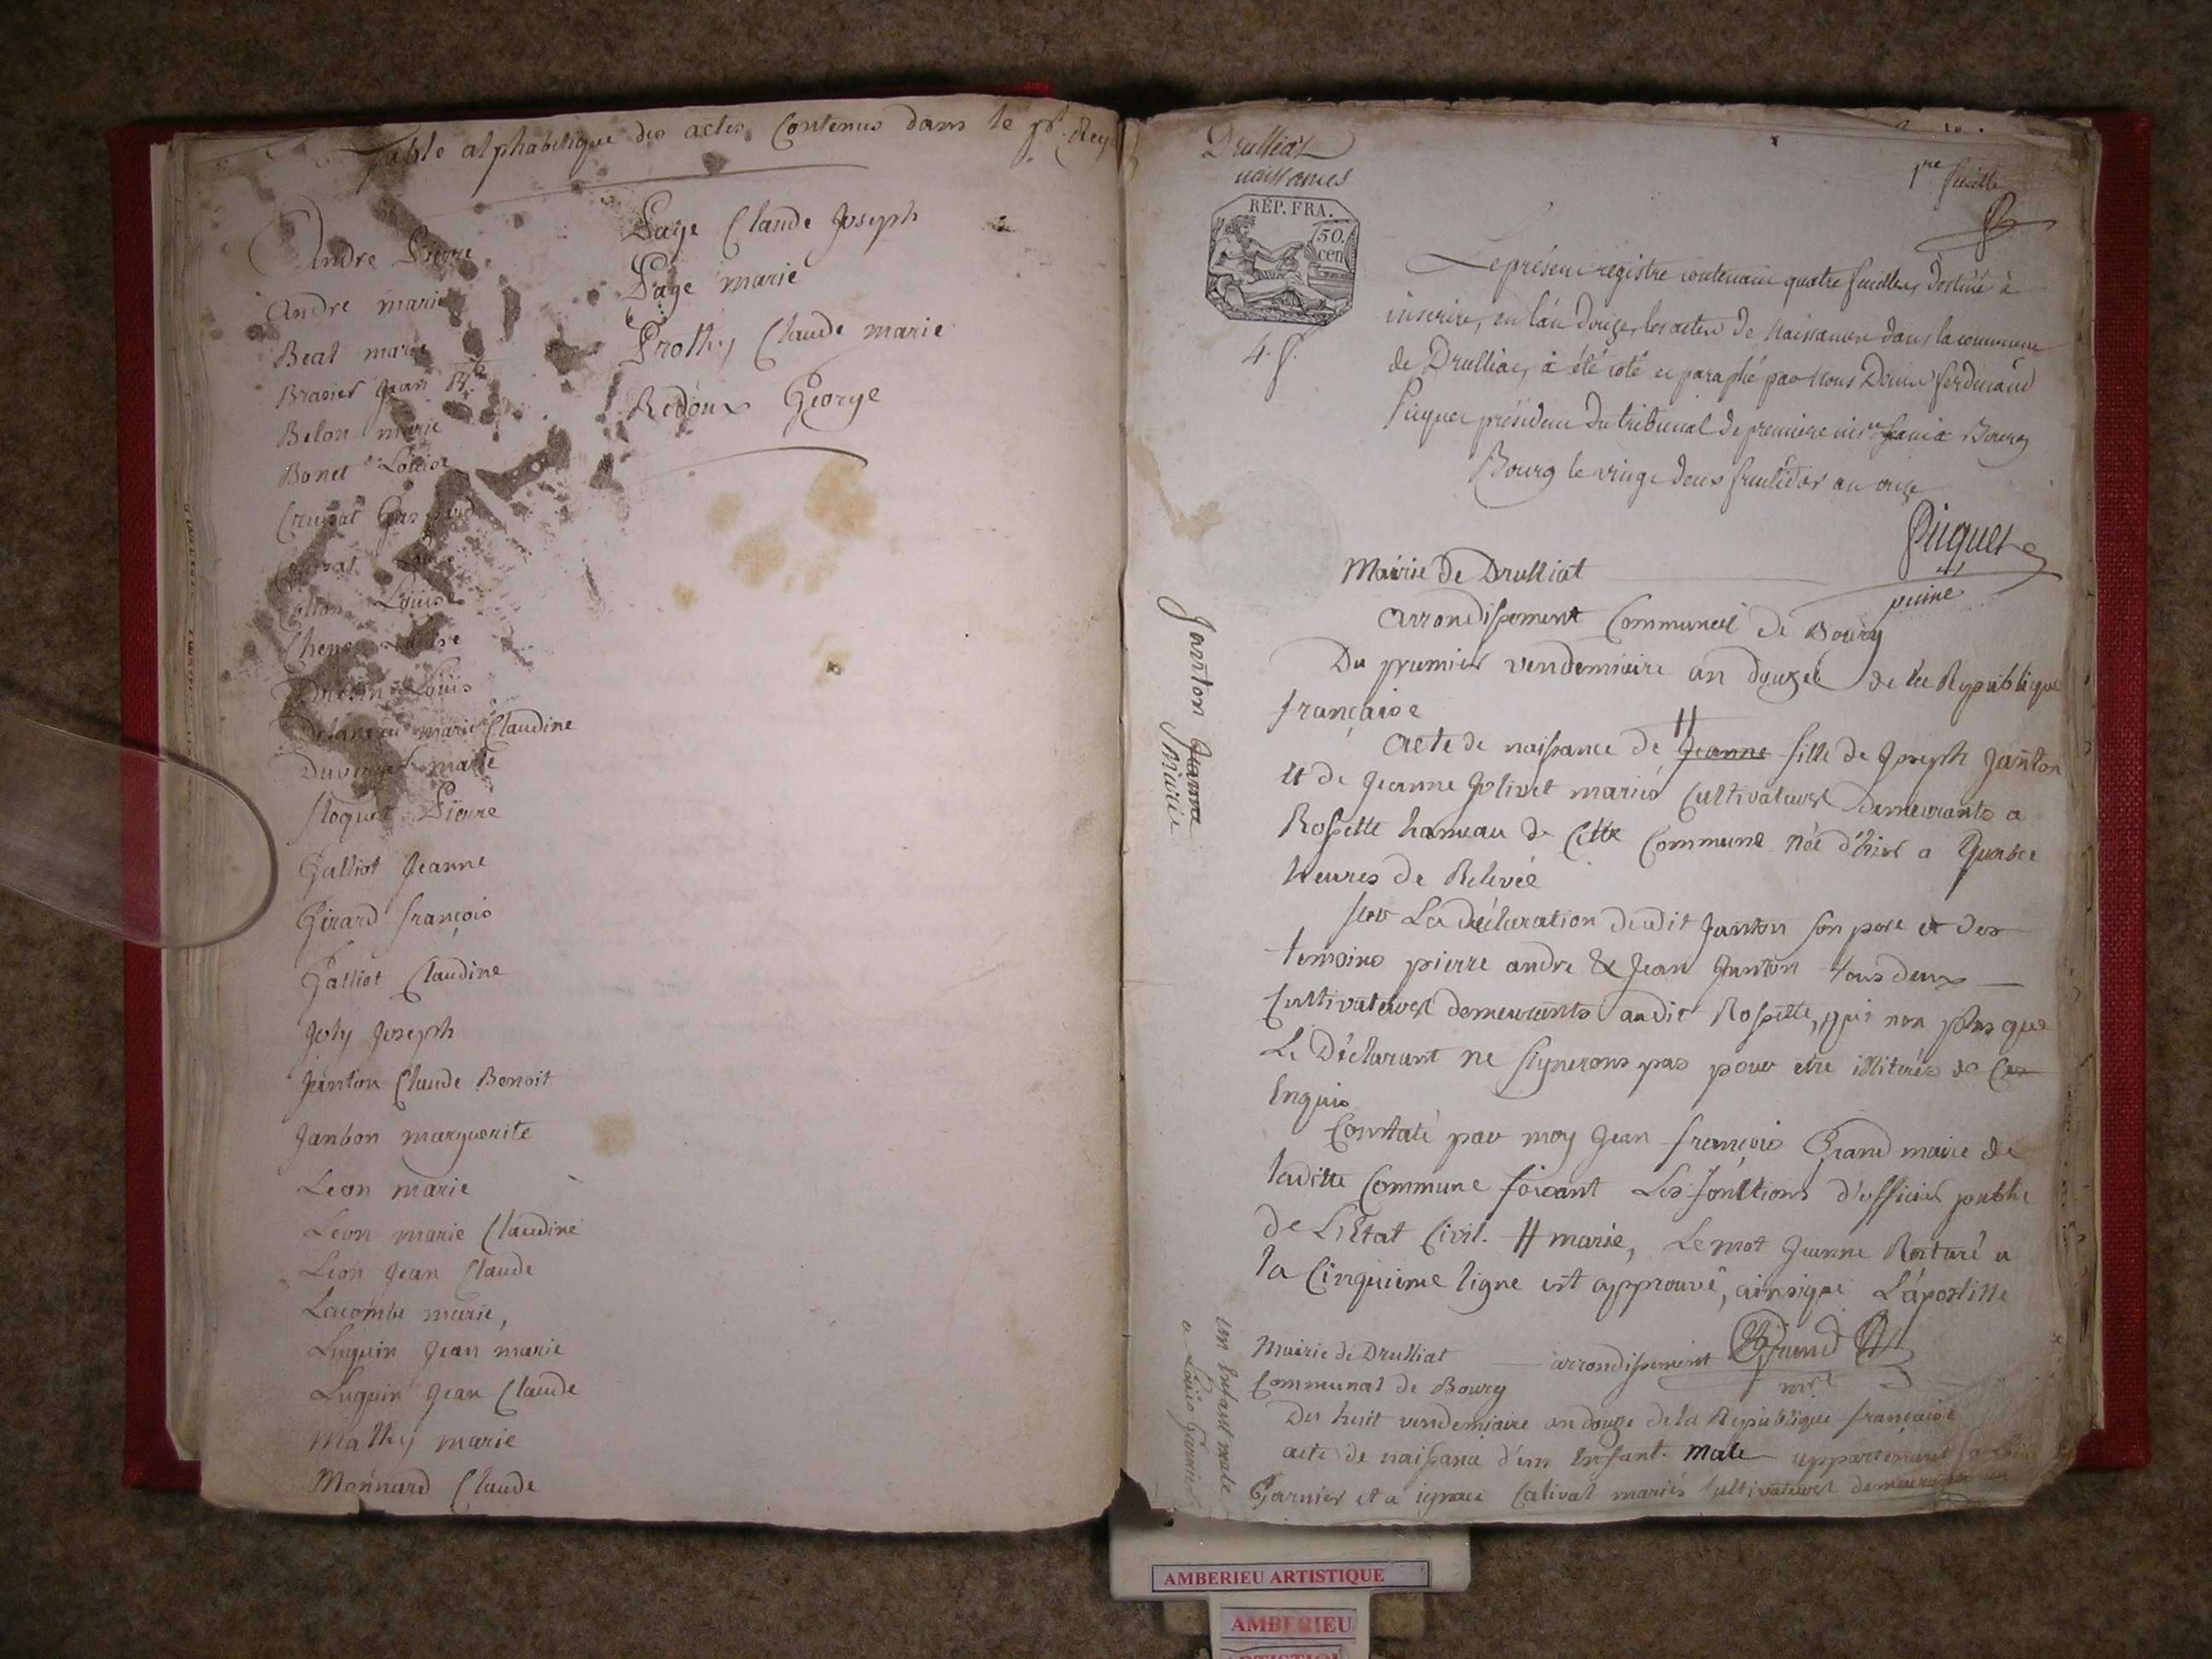 Table alphabetique des actes Contenus dans le pt. Reg
Andre Pierre
Andre marie
Beat marie
Bracier Jean Bte
Belon marie
Bonet Louise
Cruisat
Louise
Chene
Louis
marie Claudine
Duverger marie
floquet Pierre
Galliot Jeanne
Girard françois
Galliot Claudine
Joly Joseph
Janton Claude Benoit
Janbon marguerite
Leon marie
Leon marie Claudine
Leon Jean Claude
Lacombe marie,
Luquin Jean marie
Luquin Jean Claude
Mathy marie
Monnard Claude
Page Claude Joseph
Page marie
Prothy Claude marie
Redoux George
Drulliat
naissances
1re feuille
REP. FRA.
50.
cen
4. f.
Le présent registre contenant quatre feuilles, destiné à
inscrire, en l'an douze, les actes de Naissances dans la commune
de Drulliat, à été coté et paraphé par Nous Denis ferdinand
Picquet président du tribunal de premiere instance à Bourg
Bourg le vingt deux fructidor an onze
Picquet
puiné
Mairie de Drulliat
arrondissement Communal de Bourg
Du premier vendemiaire an douze de la Republique
française
acte de naissance de Jeanne fille de Joseph Janton
et de Jeanne Jolivet mariés Cultivateurs demeurants a
Rossette hameau de Cette Commune née d'hier a Quatre
heures de Relevée
Sur La déclaration dudit Janton son pere et des
temoins pierre andre & Jean Janton tous deux
Cultivateurs demeurants audit Rossette, qui non plus que
Le Déclarant ne signerons pas pour etre illiterés de Ce
Enquis
Constaté par moy Jean françois Grand maire de
laditte Commune faisant Les fonctions d'officier public
de L'Etat Civil. # marie, Le mot Jeanne Raturé a
la Cinquieme ligne est approuvé, ainsique L'apostille
Grand
mre
Janton Jeanne
Marie
Mairie de Drulliat arrondissement
Communal de Bourg
Du huit vendemiaire an douze de la Republique française
acte de naissance d'un Enfant male appartenant
Garnier et a Calivat mariés Cultivateurs demeurants
un Enfant male
a Louis Garnier
AMBERIEU ARTISTIQUE
AMBERIEU
ARTISTIQUE